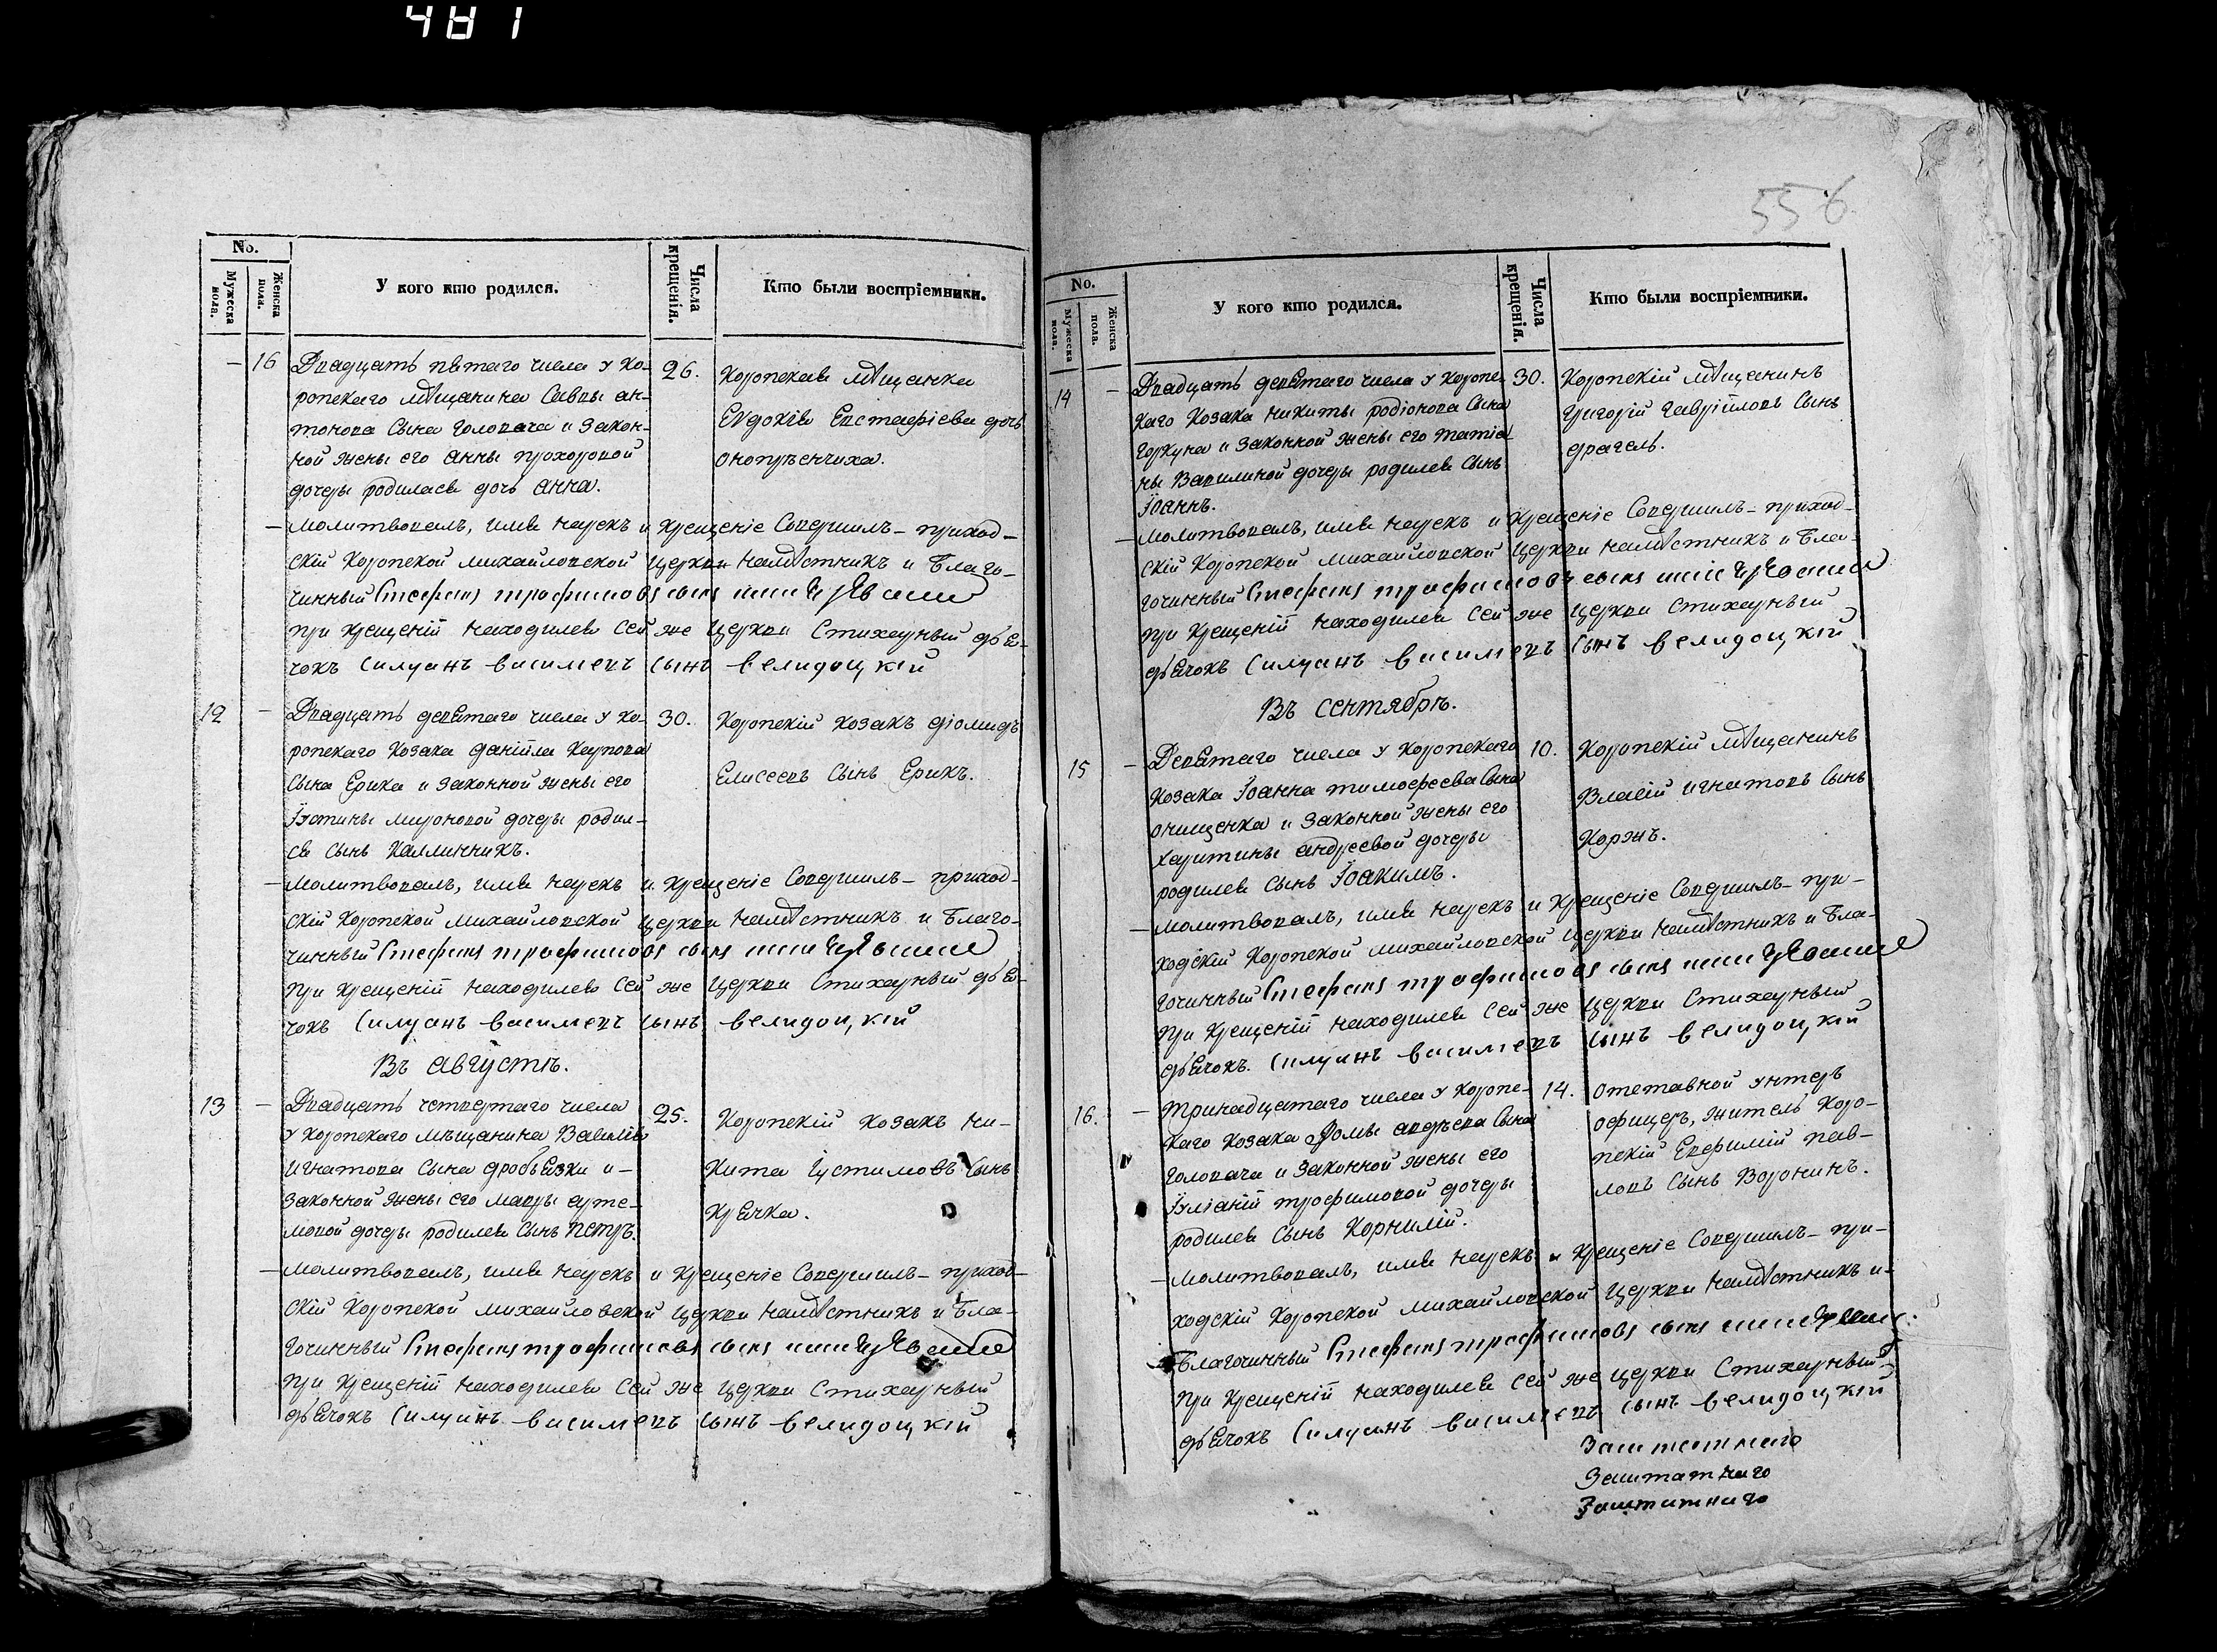 481
No.
Мужеска пола.
Женска пола.
У кого кто родился.
Числа крещенія.
Кто были воспріемники.
— 16 Двадцать пятаго числа у Ко-
ропскаго мѣщанина Саввы ан-
тонова Сына Головача и Закон-
ной жены его Анны прохоровой
дочеры родилася дочь Анна.
26.
Коропская мѣщанка
Евдокія Евстафіева дочь
— Молитвовалъ, имя нарекъ и Крещеніе Совершилъ — приход-
скій Коропской Михайловской Церкви намѣстникъ и Благо-
чинный Стефанъ трофимовъ сынъ
при Крещеній находился Сей же Церкви Стихарный дья-
чокъ Силуанъ васильевъ сынъ велидоцкій
12 — Двадцать девятаго числа у Ко-
ропскаго Козака даніила Карпова
Сына Ерика и Законной жены его
мироновой дочеры родил-
ся Сынъ Каллинникъ.
30.
Коропскій Козакъ діомидъ
Елисеевъ Сынъ Ерикъ.
— Молитвовалъ, имя нарекъ и Крещеніе Совершилъ — приход-
скій Коропской Михайловской Церкви намѣстникъ и Благо-
чинный Стефанъ трофимовъ сынъ
при Крещеній находился Сей же Церкви Стихарный дья-
чокъ Силуанъ васильевъ сынъ велидоцкій
Въ августѣ.
13 — Двадцать четвертаго числа
у Коропскаго мѣщанина Василія
игнатова Сына дробязки и —
Законной жены его Мавры арте-
мовой дочеры родился Сынъ Петръ.
25.
Коропскій Козакъ Ни-
кита Іустимовъ Сынъ
Крячка.
— Молитвовалъ, имя нарекъ и Крещеніе Совершилъ — приход-
скій Коропской михайловской Церкви намѣстникъ и Бла-
гочинный Стефанъ трофимовъ сынъ
при Крещеній находился Сей же Церкви Стихарный
дьячокъ Силуанъ васильевъ сынъ велидоцкій
556
No.
Мужеска пола.
Женска пола.
У кого кто родился.
Числа крещенія.
Кто были воспріемники.
14 — Двадцать девятаго числа у Коропс-
каго Козака никиты родіонова Сына
Горкуна и Законной жены его татіа-
ны Василиной дочеры родился Сынъ
Іоаннъ.
30.
Коропскій мѣщанинъ
григорій гавріиловъ Сынъ
драгель.
— Молитвовалъ, имя нарекъ и Крещеніе Совершилъ — приход-
скій Коропской Михайловской Церкви намѣстникъ и Бла-
гочинный Стефанъ трофимовъ сынъ
при Крещеній находился Сей же Церкви Стихарный
дьячокъ Силуанъ васильевъ сынъ велидоцкій
Въ сентябрѣ.
15 — Девятаго числа у Коропскаго
Козака Іоанна тимофеева Сына
онищенка и Законной жены его
Харитины андреевой дочеры
родился Сынъ Іоакимъ.
10.
Коропскій мѣщанинъ
Власій игнатовъ Сынъ
Коржъ.
— Молитвовалъ, имя нарекъ и Крещеніе Совершилъ — при-
ходскій Коропской Михайловской Церкви намѣстникъ и Бла-
гочинный Стефанъ трофимовъ сынъ
при Крещеній находился Сей же Церкви Стихарный
дьячокъ. Силуанъ васильевъ сынъ велидоцкій
16. — тринадцатаго числа у Коропс-
каго Козака Фомы авдѣева Сына
Головача и Законной жены его
трофимовой дочеры
родился Сынъ Корнилій.
14.
отставной унтеръ
офицеръ, житель Коро-
пскій Евфимій пав-
ловъ Сынъ Воронинъ.
— Молитвовалъ, имя нарекъ и Крещеніе Совершилъ — при-
ходскій Коропской Михайловской Церкви намѣстникъ и
Благочинный Стефанъ трофимовъ сынъ
при Крещеній находился Сей же Церкви Стихарный
дьячокъ Силуанъ васильевъ сынъ велидоцкій
Заштатнаго
Заштатнаго
Заштатнаго